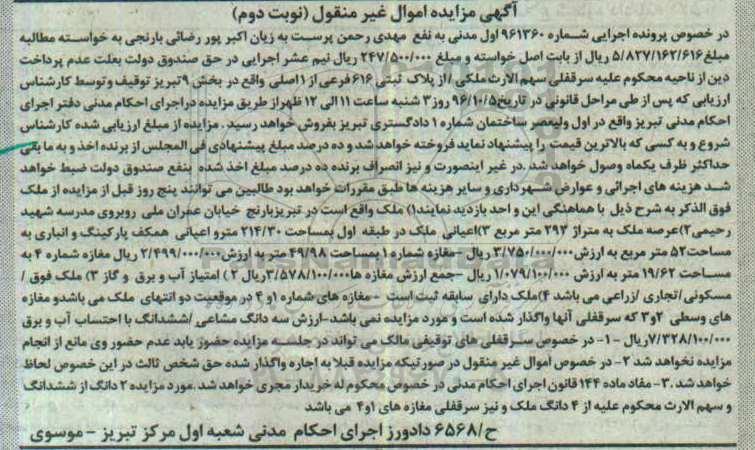 آگهی مزایده اموال غیر منقول (نوبت دوم)
در خصوص پرونده اجرایی شماره ۹۶۱۳۶۰ اول مدنی به نفع مهدی رحمن پرست به زیان اکبر پور رضائی بارنجی به خواسته مطالبه
مبلغ ۵/۸۳۷/۱۶۲/۶۱۶ ریال از بابت اصل خواسته و مبلغ ۲۴۷/۵۰۰/۰۰۰ ریال نیم عشر اجرایی در حق صندوق دولت بعلت عدم پرداخت
دین از ناحیه محکوم علیه سرقفلی /سهم الارث ملکی /از پلاک ثبتی ۶۱۶ فرعی از ۱اصلی واقع در بخش ۹تبریز توقیف وتوسط کارشناس
ارزیابی که پس از طی مراحل قانونی در تاریخ۹۶/۱۰/۵ روز ۳ شنبه ساعت ۱۱ الی ۱۲ ظهراز طریق مزایده دراجرای احکام مدنی دفتر اجرای
احکام مدنی تبریز واقع در اول ولیعصر ساختمان شماره ۱ دادگستری تبریز بفروش خواهد رسید . مزایده از مبلغ ارزیابی شده کارشناس
شروع و به کسی که بالاترین قیمت را پیشنهاد نماید فروخته خواهد شد و ده درصد مبلغ پیشنهادی فی المجلس از برنده اخذ و به ما بقی
حداکثر ظرف یکماه وصول خواهد شد .در غیر اینصورت و نیز انصراف برنده ده درصد مبلغ اخذ شده بنفع صندوق دولت ضبط خواهد
شد هزینه های اجرائی و عوارض شهرداری و سایر هزینه ها طبق مقررات خواهد بود طالبین می توانند پنج روز قبل از مزایده از ملک
فوق الذکر به شرح ذیل با هماهنگی این و احد بازدید نمایند۱) ملک واقع است در تبریزبارنج خیابان عمران ملی روبروی مدرسه شهید
رحیمی۲)عرصه ملک به متراژ ۲۹۳ متر مربع ۳)اعیانی ملک در طبقه اول بمساحت ۲۱۴/۳۰ مترو اعیانی همکف پارکینگ و انباری به
مساحت۵۲ متر مربع به ارزش۳/۷۵۰/۰۰۰/۰۰۰ ریال - مغازه شماره ۱ بمساحت ۴۹/۹۸متر به ارزش۲/۴۹۹/۰۰۰/۰۰۰ ریال مغازه شماره ۴ به
مساحت ۱۹/۶۲ متر به ارزش ۱/۰۷۹/۱۰۰/۰۰۰ ریال -جمع ارزش مغازه ها۳/۵۷۸/۱۰۰/۰۰۰ریال ۲) امتیاز آب و برق و گاز ۳) ملک فوق /
مسکونی/تجاری /زراعی می باشد ۴)ملک دارای سابقه ثبت است - مغازه های شماره ۱و ۴ در موقعیت دو انتهای ملک می باشدو مغازه
های وسطی ۲و ۳ که سرقفلی آنها واگذار شده است و مورد مزایده نمی باشد-ارزش سه دانگ مشاعی /ششدانگ با احتساب آب و برق
۷/۳۲۸/۱۰۰/۰۰۰ریال - ۱- در خصوص سرقفلی های توقیفی مالک می تواند در جلسه مزایده حضور یابد عدم حضور وی مانع از انجام
مزایده نخواهد شد ۲- در خصوص اموال غیر منقول در صورتیکه مزایده قبلا به اجاره واگذار شده حق شخص ثالث در این خصوص لحاظ
خواهد شد .۳- مفاد ماده ۱۴۴ قانون اجرای احکام مدنی در خصوص محکوم له خریدار مجری خواهد شد .مورد مزایده ۲ دانگ از ششدانگ
و سهم الارث محکوم علیه از ۴ دانگ ملک و نیز سرقفلی مغازه های ۱و۴ می باشد
ح/۶۵۶۸ دادورز اجرای احکام مدنی شعبه اول مرکز تبریز - موسوی